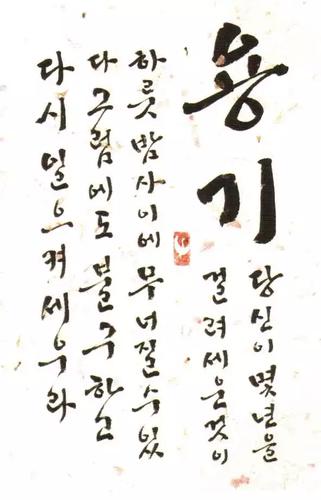 용기
당신이 몇년을
걸려 세운것이
하룻밤 사이에 무너질수있
다 그럼에도 불구하고
다시 일으켜 세우라